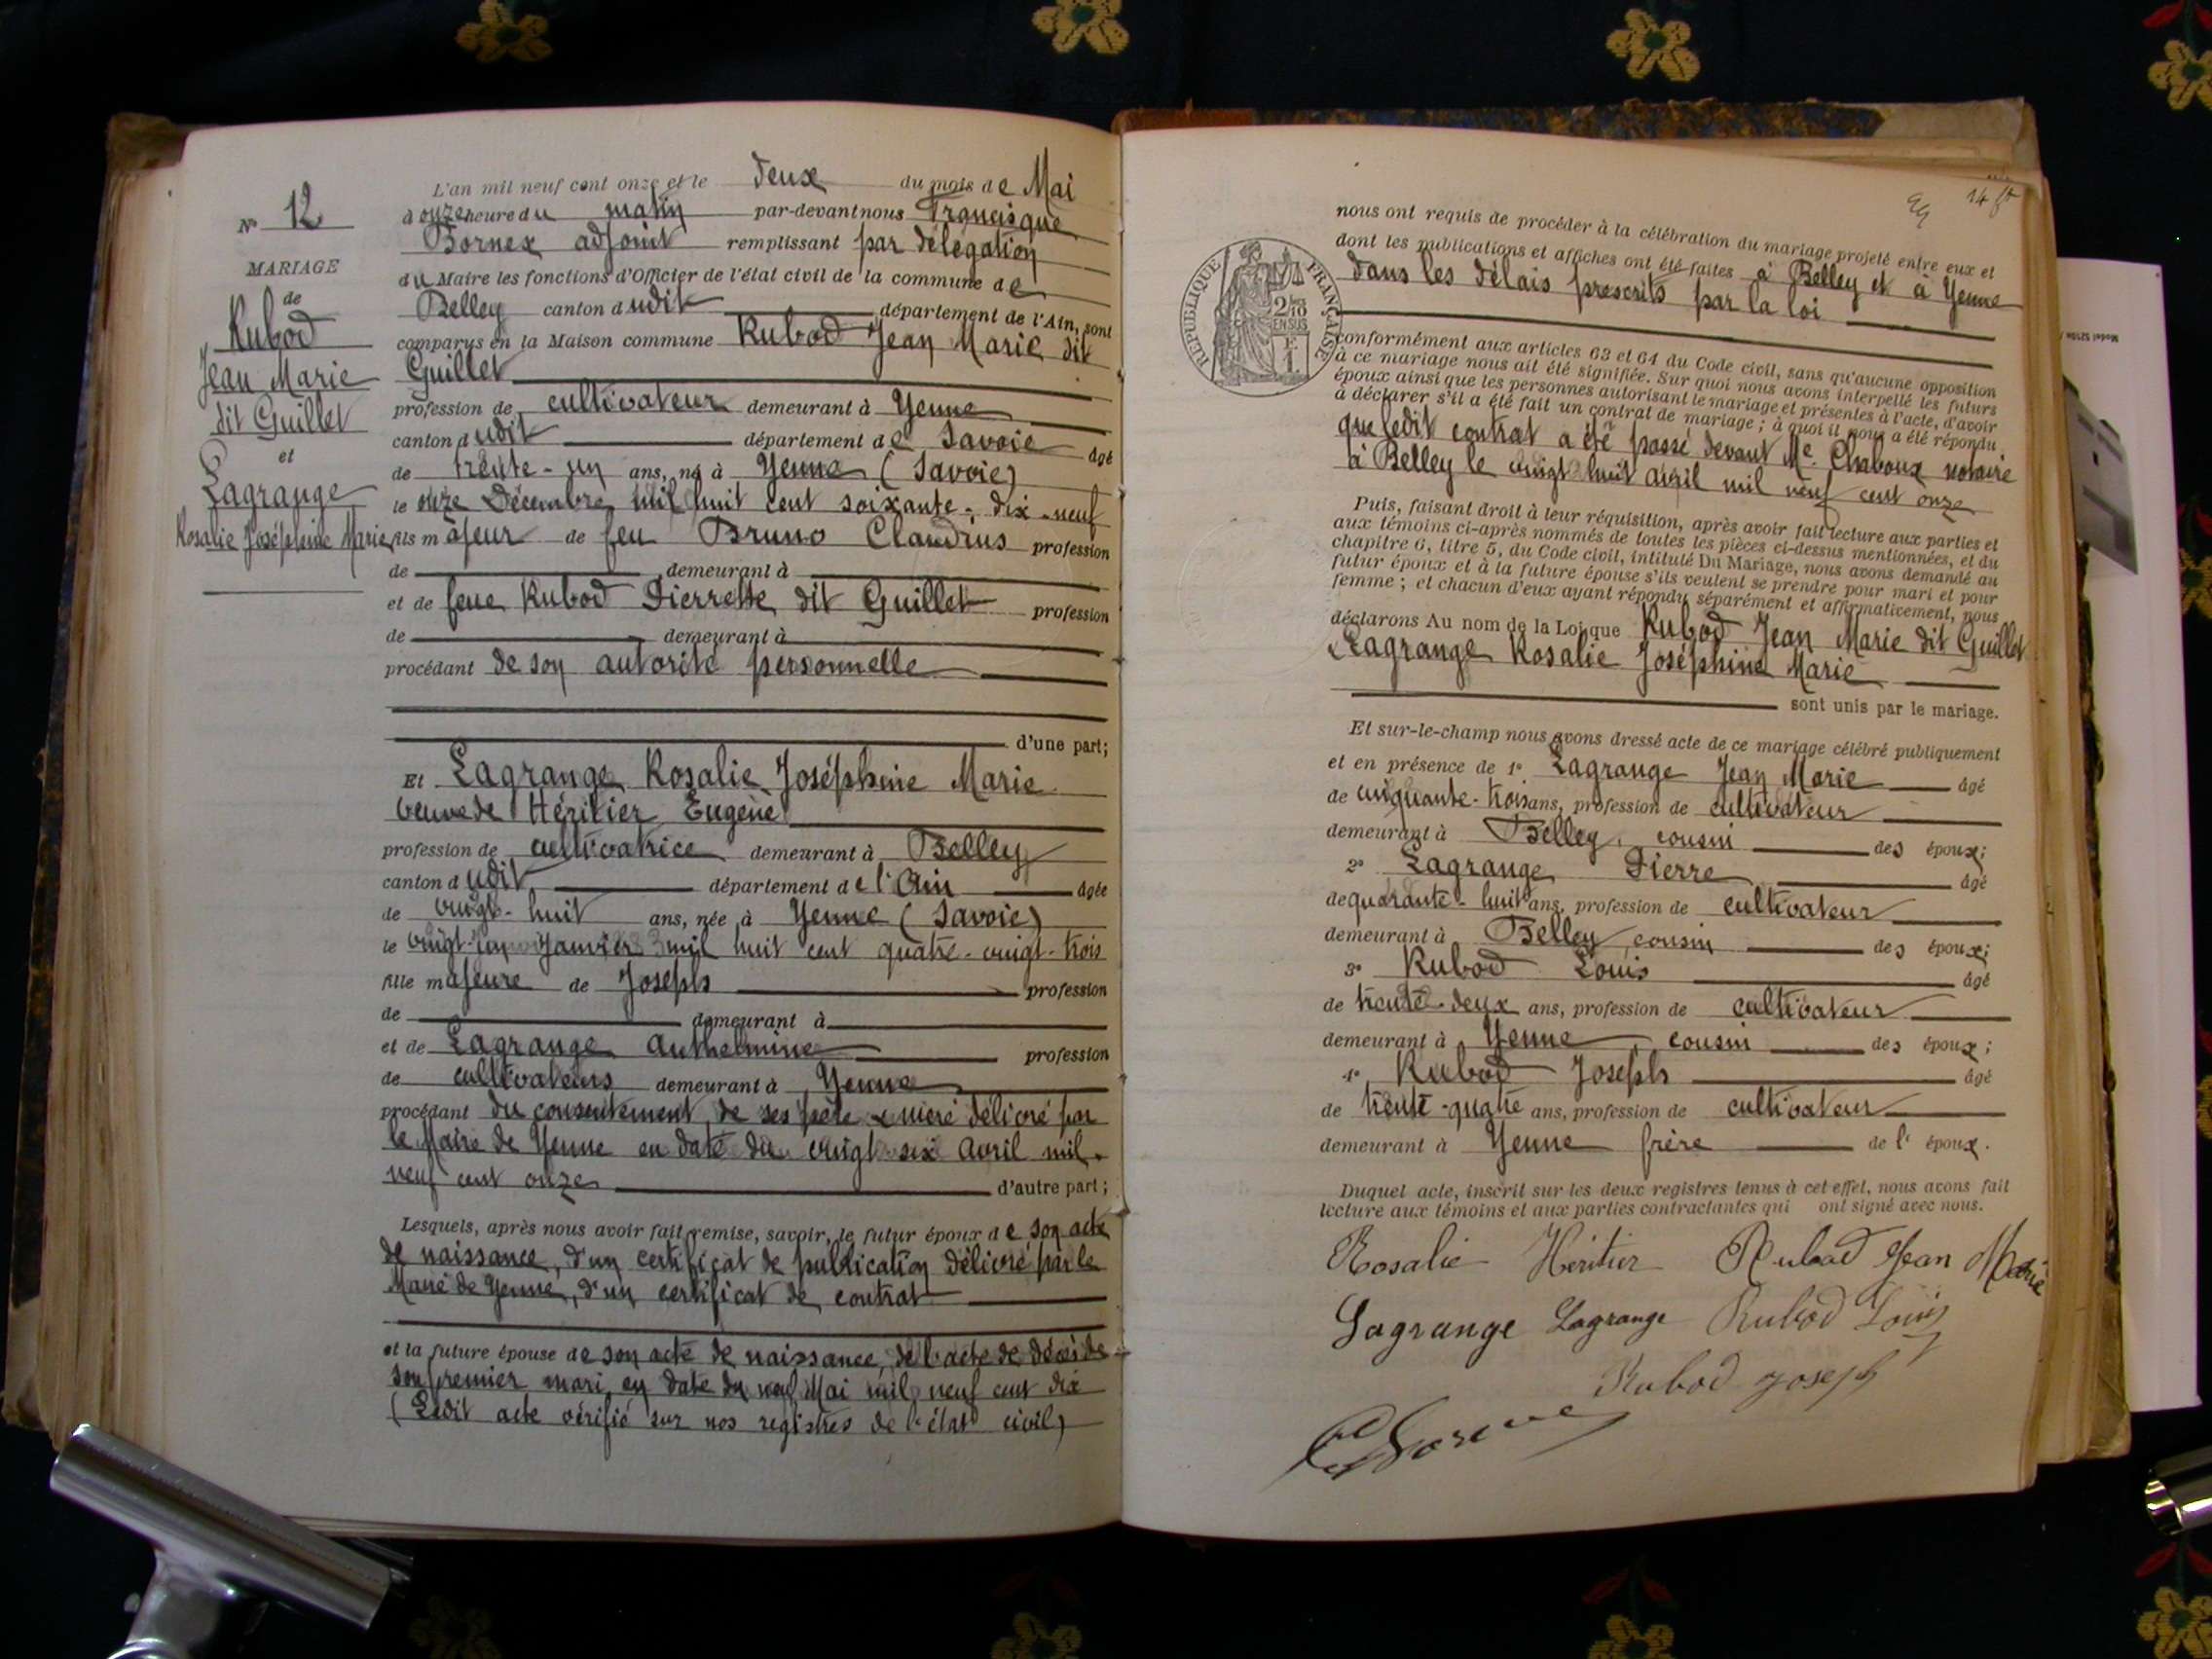 N° 12
MARIAGE
de
Rubod
Jean Marie
dit Guillet
et
Lagrange
Rosalie Joséphine Marie
L'an mil neuf cent onze et le deux du mois de Mai
à onze heure du matin par-devant nous Francisque
Bornex adjoint remplissant par délégation
du Maire les fonctions d'Officier de l'état civil de la commune de
Belley canton dudit département de l'Ain, sont
comparus en la Maison commune Rubod Jean Marie dit
Guillet
profession de cultivateur demeurant à Yenne
canton dudit département de Savoie âgé
de trente-un ans, né à Yenne (Savoie)
le onze Décembre mil huit cent soixante-dix-neuf
fils majeur de feu Bruno Claudius profession
de demeurant à
et de feue Rubod Pierrette dit Guillet profession
de demeurant à
procédant de son autorité personnelle
d'une part;
Et Lagrange Rosalie Joséphine Marie
veuve de Héritier Eugène
profession de cultivatrice demeurant à Belley
canton dudit département de l'Ain âgée
de vingt-huit ans, née à Yenne (Savoie)
le vingt-un Janvier mil huit cent quatre-vingt-trois
fille majeure de Joseph profession
de demeurant à
et de Lagrange Anthelmine profession
de cultivateurs demeurant à Yenne
procédant du consentement de ses père & mère délivré par
le Maire de Yenne en date du vingt six Avril mil
neuf cent onze d'autre part;
Lesquels, après nous avoir fait remise, savoir, le futur époux de son acte
de naissance, d'un certificat de publication délivré par le
Maire de Yenne, d'un certificat de contrat
et la future épouse de son acte de naissance, de l'acte de décès de
son premier mari en date du neuf Mai mil neuf cent dix
(Ledit acte vérifié sur nos registres de l'état civil)
14
nous ont requis de procéder à la célébration du mariage projeté entre eux et
dont les publications et affiches ont été faites à Belley et à Yenne
dans les délais prescrits par la loi
RÉPUBLIQUE FRANÇAISE
2/10 EN SUS
1F
conformément aux articles 63 et 64 du Code civil, sans qu'aucune opposition
à ce mariage nous ait été signifiée. Sur quoi nous avons interpellé les futurs
époux ainsi que les personnes autorisant le mariage et présentes à l'acte, d'avoir
à déclarer s'il a été fait un contrat de mariage; à quoi il nous a été répondu
que ledit contrat a été passé devant Me. Chaboux notaire
à Belley le vingt huit avril mil neuf cent onze
Puis, faisant droit à leur réquisition, après avoir fait lecture aux parties et
aux témoins ci-après nommés de toutes les pièces ci-dessus mentionnées, et du
chapitre 6, titre 5, du Code civil, intitulé Du Mariage, nous avons demandé au
futur époux et à la future épouse s'ils veulent se prendre pour mari et pour
femme; et chacun d'eux ayant répondu séparément et affirmativement, nous
déclarons Au nom de la Loi que Rubod Jean Marie dit Guillet
& Lagrange Rosalie Joséphine Marie
sont unis par le mariage.
Et sur-le-champ nous avons dressé acte de ce mariage célébré publiquement
et en présence de 1° Lagrange Jean Marie âgé
de cinquante-trois ans, profession de cultivateur
demeurant à Belley, cousin des époux;
2° Lagrange Pierre âgé
de quarante-huit ans, profession de cultivateur
demeurant à Belley, cousin des époux;
3° Rubod Louis âgé
de trente-deux ans, profession de cultivateur
demeurant à Yenne, cousin des époux;
4° Rubod Joseph âgé
de trente-quatre ans, profession de cultivateur
demeurant à Yenne frère de l'époux.
Duquel acte, inscrit sur les deux registres tenus à cet effet, nous avons fait
lecture aux témoins et aux parties contractantes qui ont signé avec nous.
Rosalie Héritier Rubod Jean Marie
Lagrange Lagrange Rubod Louis
Rubod Joseph